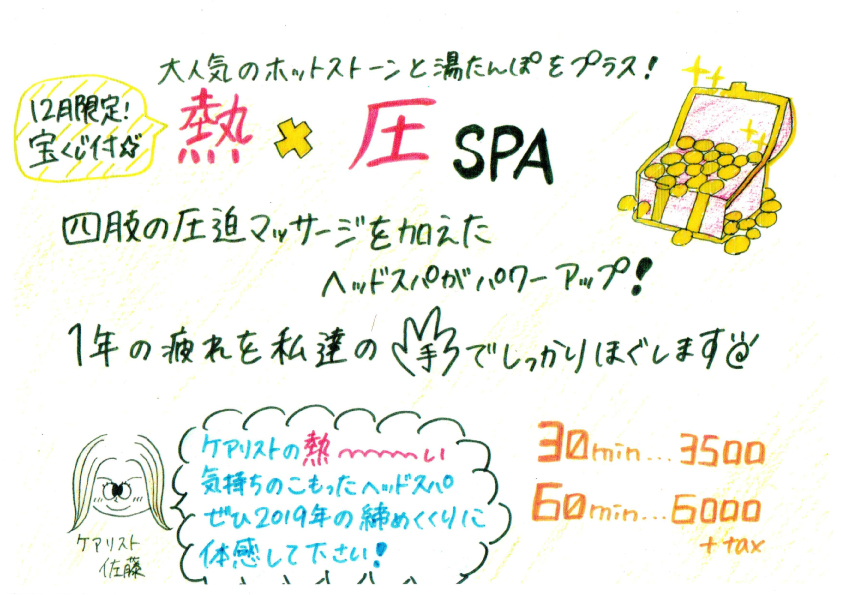 大人気のホットストーンと湯たんぽをプラス!
12月限定!
宝くじ付☆
熱×圧 SPA
四肢の圧迫マッサージを加えた
ヘッドスパがパワーアップ!
1年の疲れを私達の手でしっかりほぐします
ケアリストの熱〜〜〜い
気持ちのこもったヘッドスパ
ぜひ2019年の締めくくりに
体感して下さい!
ケアリスト
佐藤
30min...3500
60min...6000
+tax